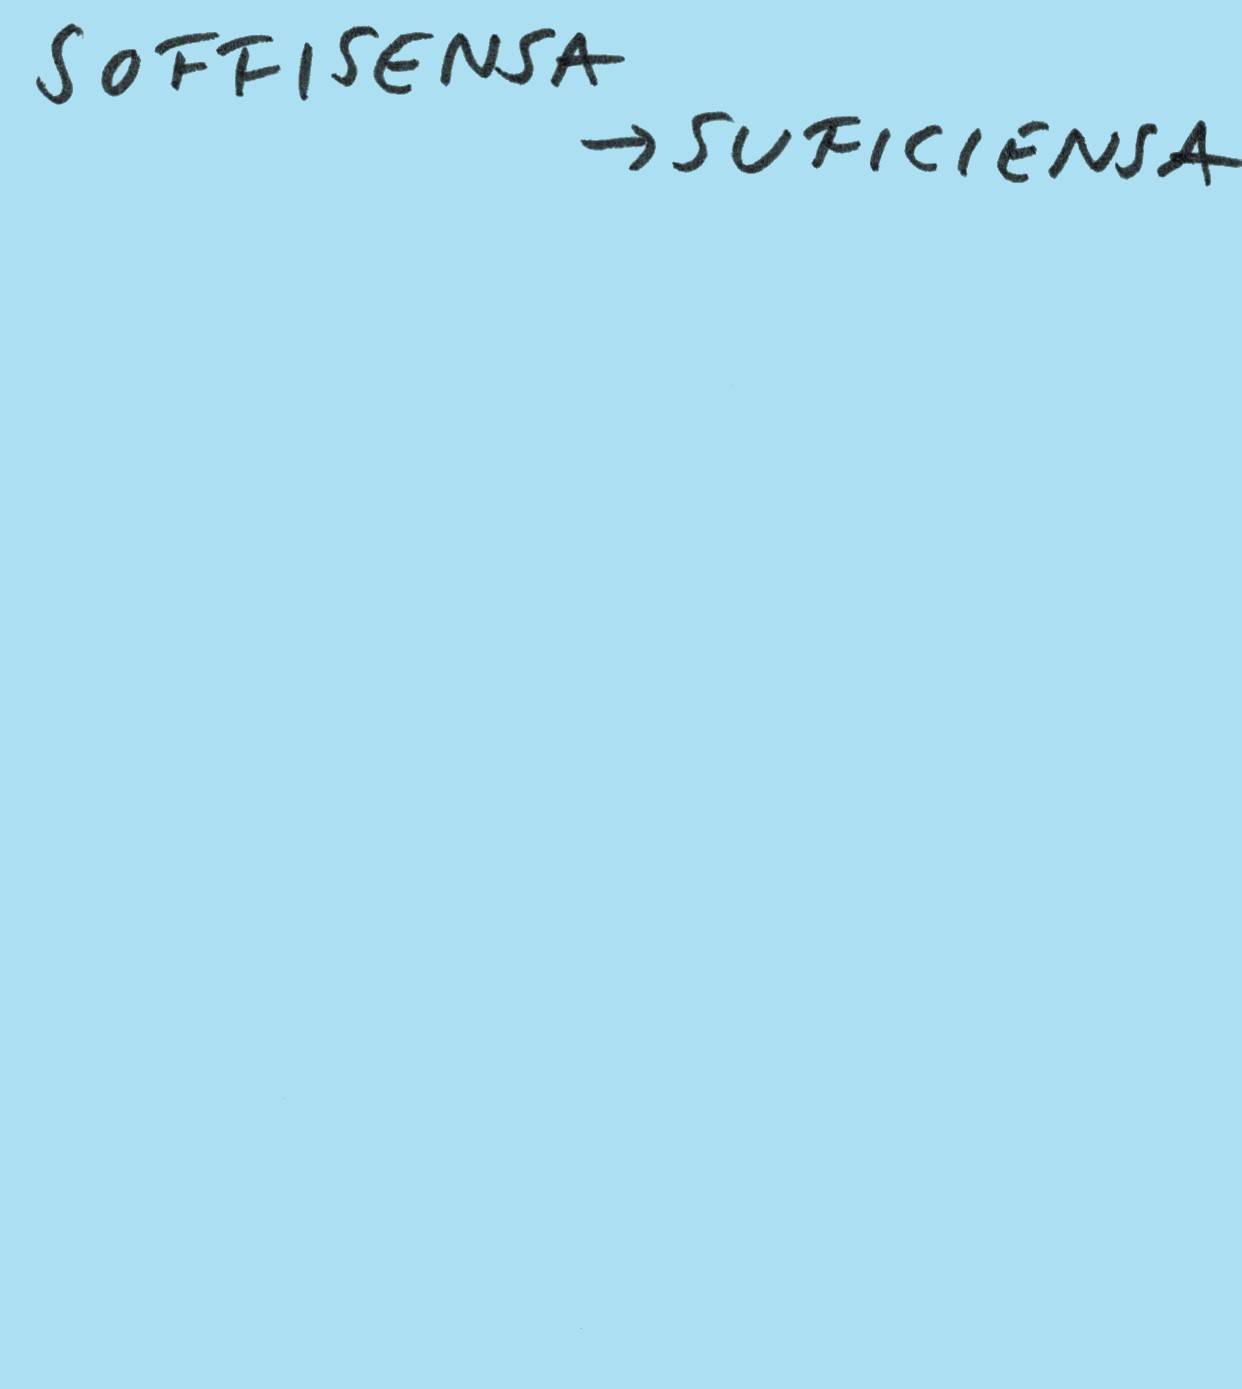 SOFFISENSA
→ SUFICIENSA